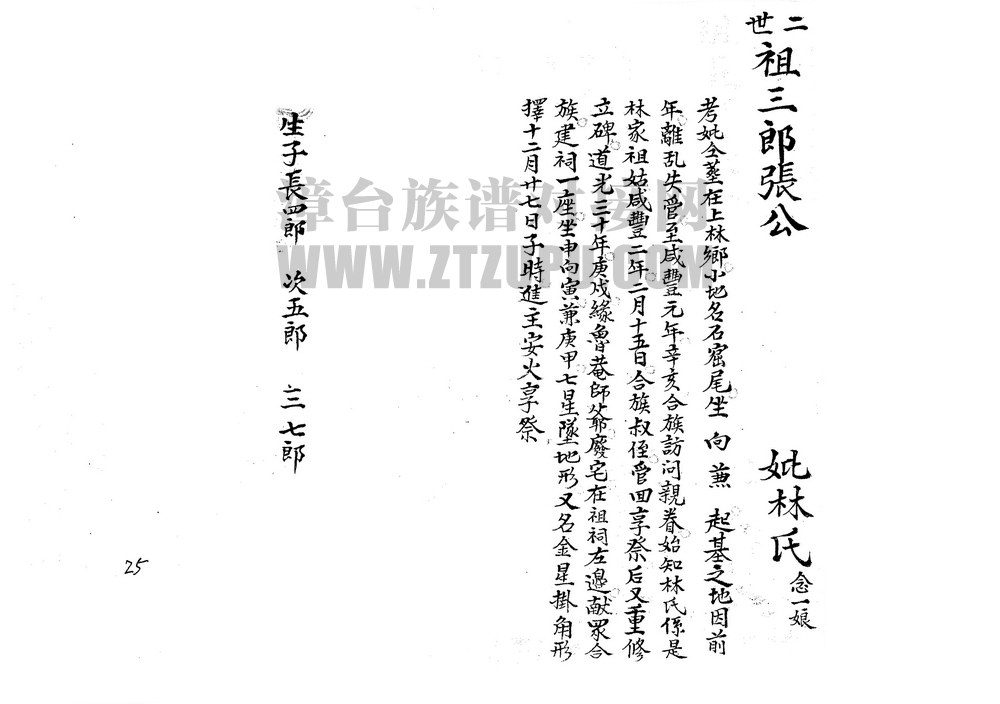 二世
祖三郎張公
妣林氏念一娘
考妣仝塟在上林鄉小地名石窟尾坐 向 兼 起基之地因前
年離乱失管至咸豐元年辛亥合族訪问親眷始知林氏係是
林家祖姑咸豐二年二月十五日合族叔侄管回享祭后又重修
立碑道光三十年庚戍緣魯菴師爺廢宅在祖祠左邉献眾合
族建祠一座坐申向寅兼庚甲七星墜地形又名金星掛角形
擇十二月廿七日子時進主安火享祭
生子長四郎 次五郎 三七郎
25
漳台族谱对接网
WWW.ZTZUPU.COM